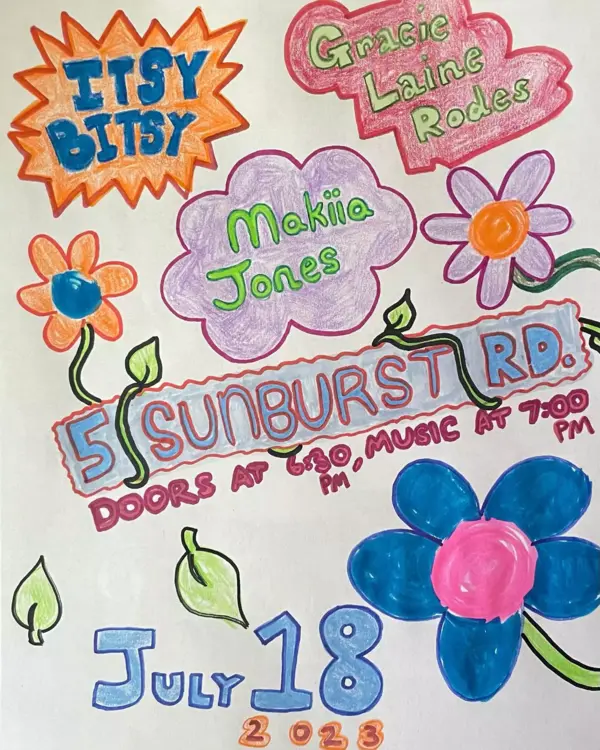 ITSY
BITSY
Gracie
Laine
Rodes
Makiia
Jones
5 SUNBURST RD.
DOORS AT 6:30 PM, MUSIC AT 7:00 PM
JULY 18
2023